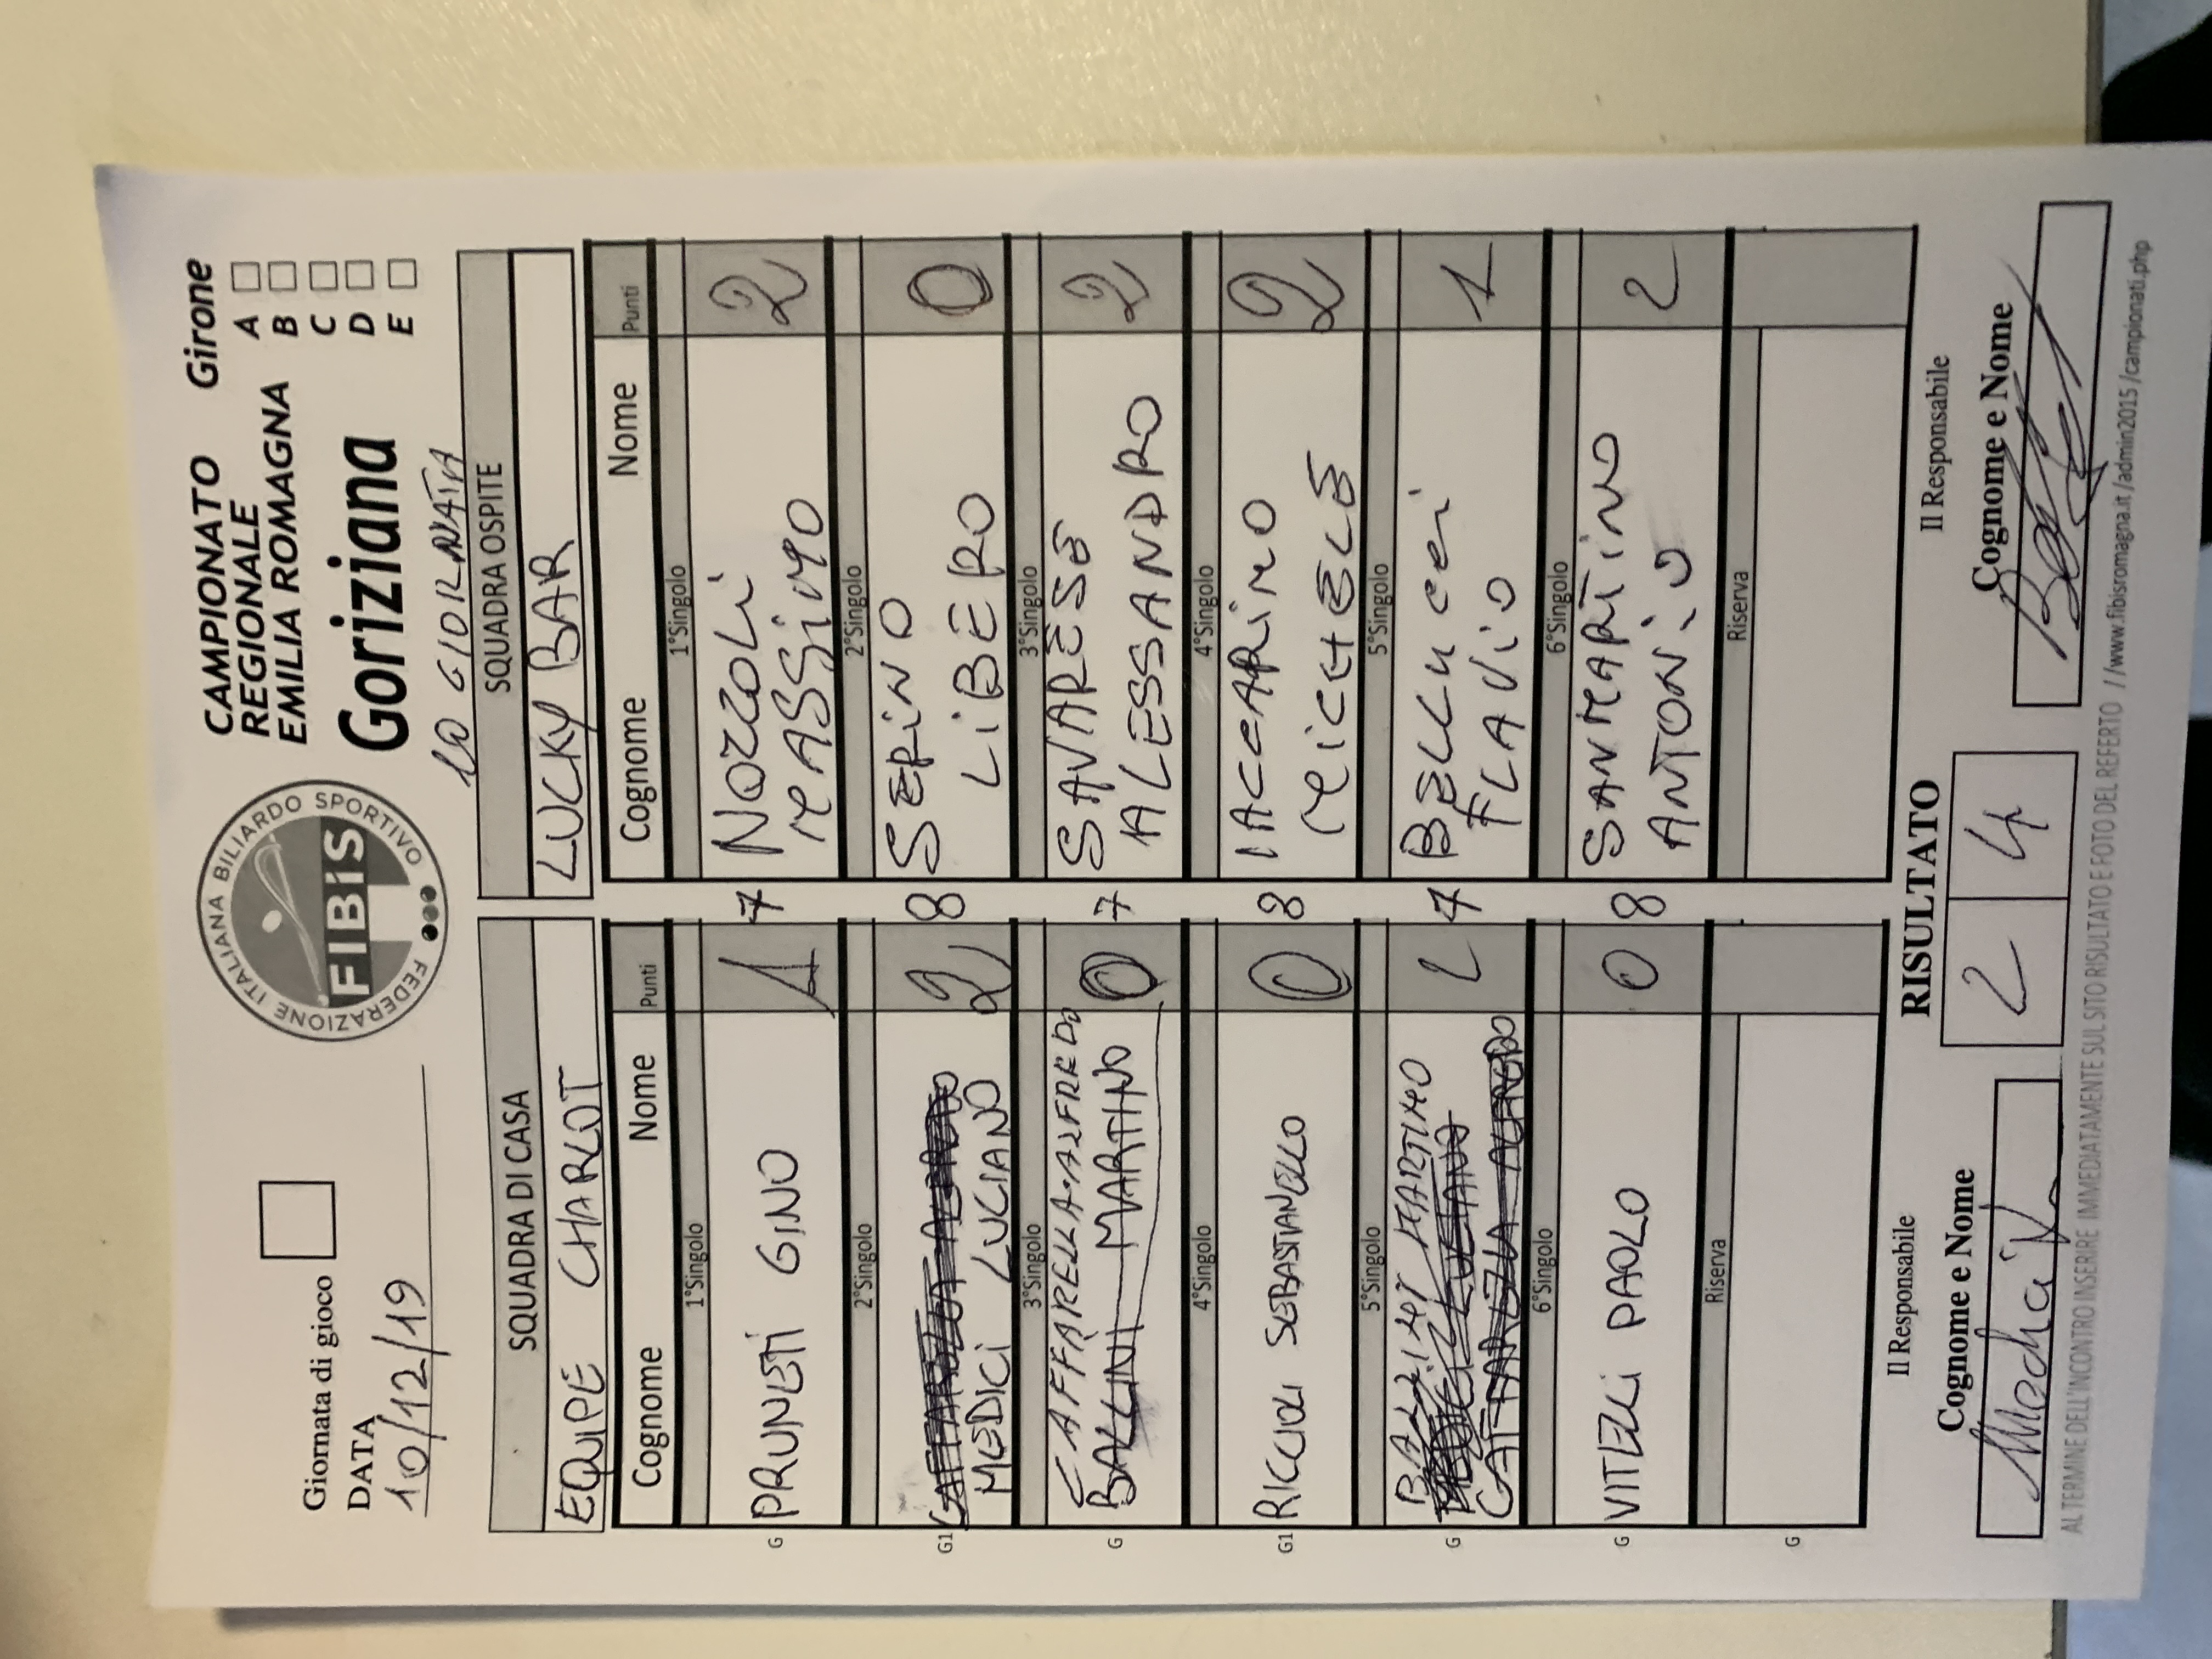 FEDERAZIONE ITALIANA BILIARDO SPORTIVO
FIBIS
CAMPIONATO
REGIONALE
EMILIA ROMAGNA
Goriziana
Girone
A
B
C
D
E
Giornata di gioco
DATA
10/12/19
10 GIORNATA
SQUADRA DI CASA
SQUADRA OSPITE
EQUIPE CHARLOT
LUCKY BAR
Cognome Nome Punti
Cognome Nome Punti
1°Singolo
1°Singolo
G PRUNETI GINO 1
7
NOZZOLI MASSIMO 2
2°Singolo
2°Singolo
G1 MEDICI LUCIANO 2
8
SEPINO LIBERO 0
3°Singolo
3°Singolo
G CAFFARELLA ALFREDO 0
BALLINI MARTINO
7
SAVARESE ALESSANDRO 2
4°Singolo
4°Singolo
G1 RICCIOLI SEBASTIANELLO 0
8
IACCARINO MICHELE 2
5°Singolo
5°Singolo
G BALLINI MARTINO 2
7
BELLUCCI FLAVIO 1
6°Singolo
6°Singolo
G VITELLI PAOLO 0
8
SANMARTINO ANTONIO 2
Riserva
Riserva
G
Il Responsabile
RISULTATO
Il Responsabile
Cognome e Nome
2 4
Cognome e Nome
AL TERMINE DELL'INCONTRO INSERIRE IMMEDIATAMENTE SUL SITO RISULTATO E FOTO DEL REFERTO //www.fibisromagna.it/admin2015/campionati.php